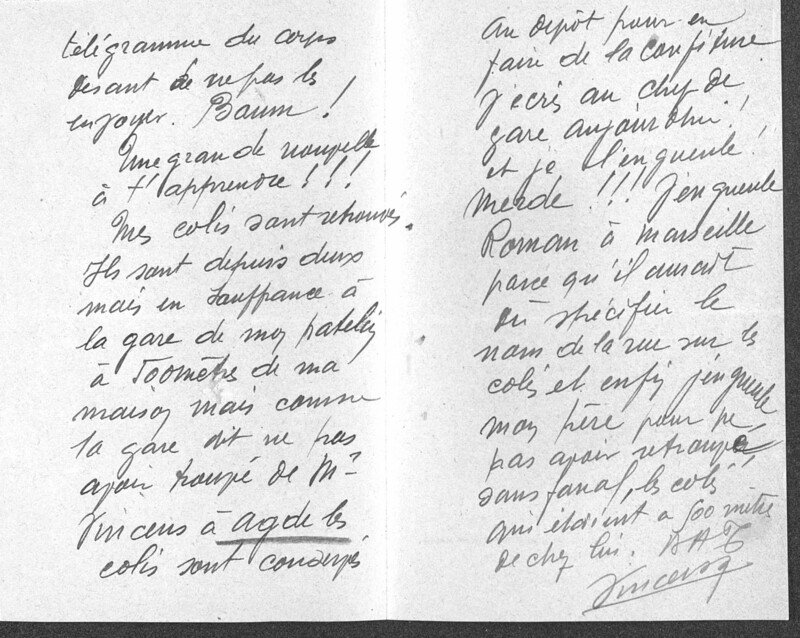 télégramme du corps
disant de ne pas les
envoyer. Baum !
Une grande nouvelle
à t'apprendre !!!
Mes colis sont retrouvés.
Ils sont depuis deux
mois en souffrance à
la gare de mon patelin
à 500 mètres de ma
maison mais comme
la gare dit ne pas
avoir trouvé de Mr
Vincens à Agde les
colis sont conservés
au depôt pour en
faire de la confiture.
J'écris au chef de
gare aujourd'hui !
et je l'engueule !
Merde !!! J'engueule
Roman à Marseille
parce qu'il aurait
dû spécifier le
nom de la rue sur les
colis et enfin j'engueule
mon père pour ne
pas avoir retrouvé,
sans fanal, les colis
qui étaient a 500 mètres
de chez lui. BAT
Vincens